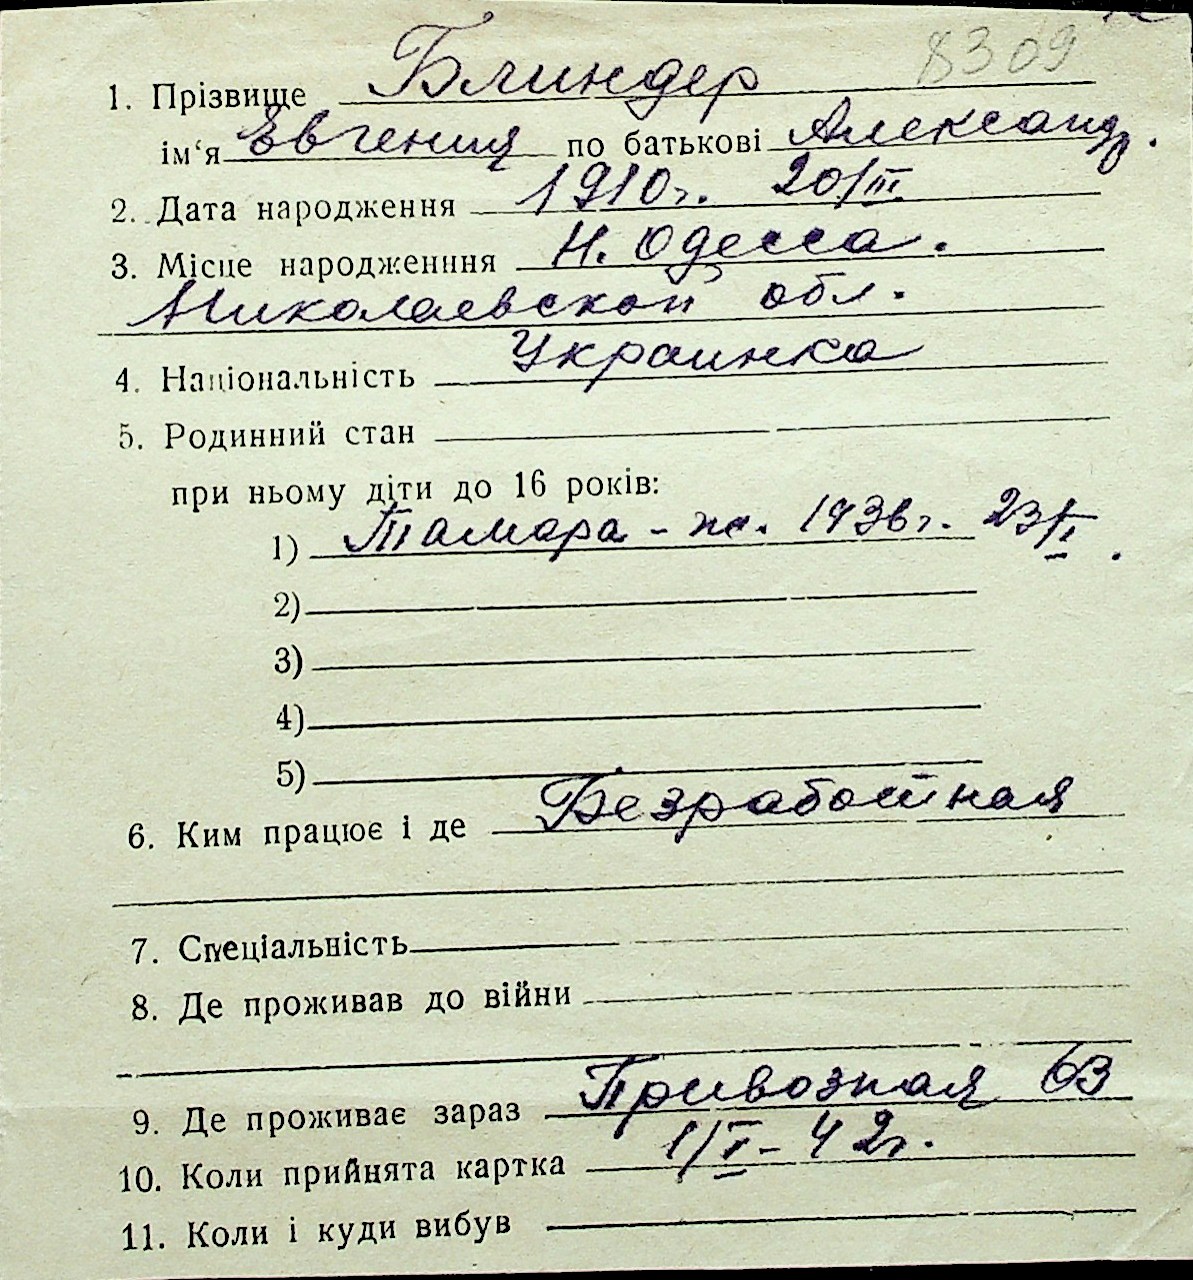 8309
1. Прізвище Блиндер
ім‘я Евгения по батькові Александр.
2. Дата народження 1910г. 20/III.
3. Місце народженння Н. Одесса.
Николаевской обл.
4. Національність Украинка
5. Родинний стан
при ньому діти до 16 років:
1) Тамара - ж. 1936г. 23/I.
2)
3)
4)
5)
6. Ким працює і де Безработная
7. Спеціальність
8. Де проживав до війни
9. Де проживає зараз Привозная 63
10. Коли прийнята картка 1/I - 42г.
11. Коли і куди вибув